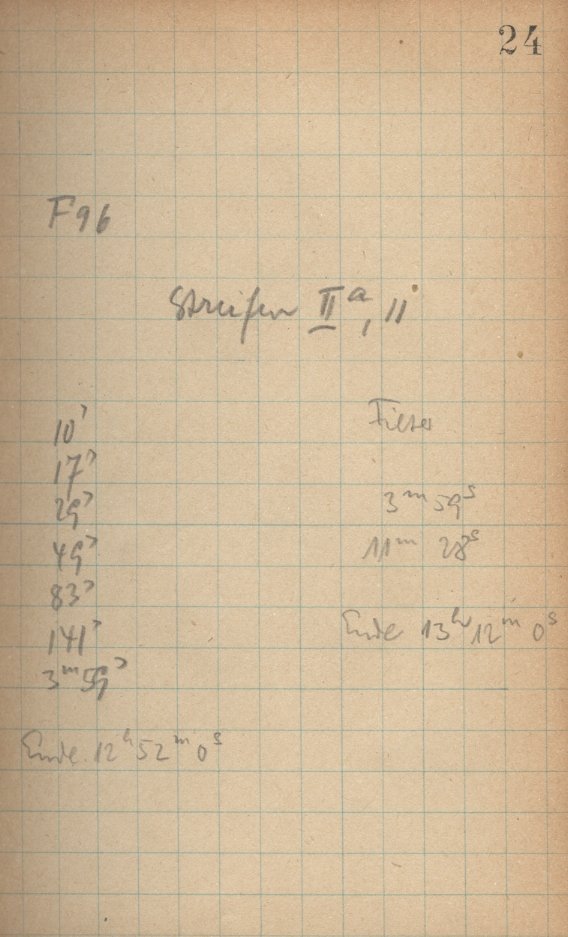 24
F96
Streifen II a, 11
10s
17s
29s
49s
83s
141s
3m 59s
Ende 12h 52m 0s
Filter
3m 59s
11m 28s
Ende 13h 12m 0s